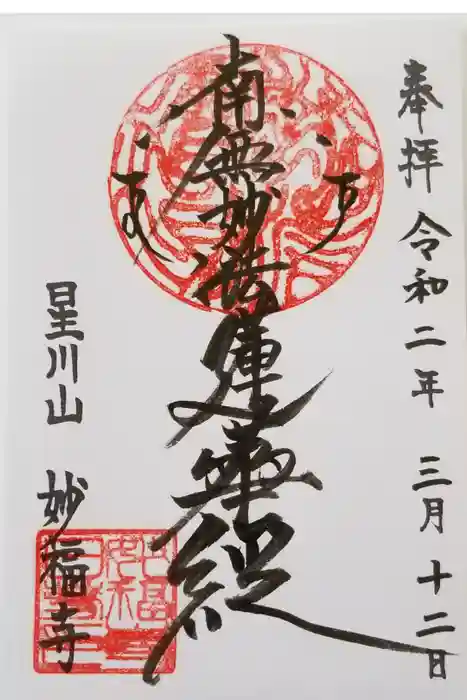 奉拝 令和二年 三月 十二日
南無妙法蓮華経
星川山 妙福寺